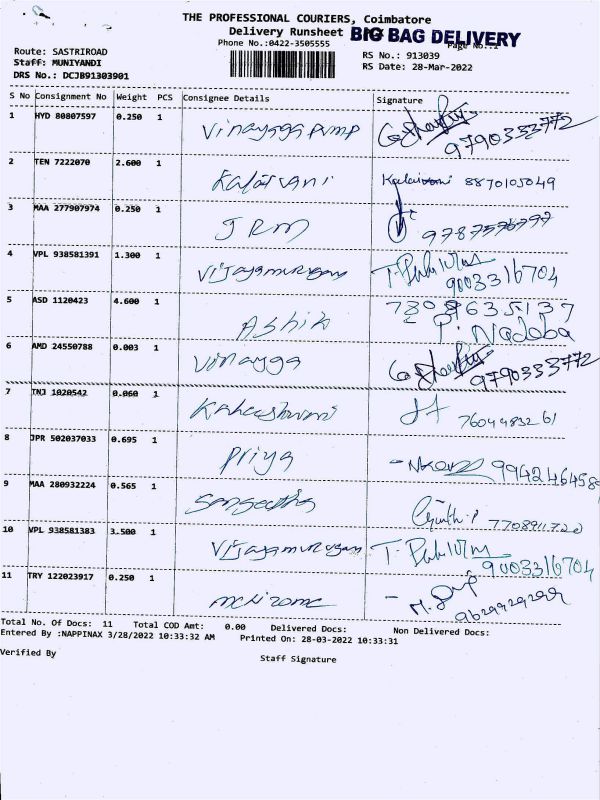 THE PROFESSIONAL COURIERS, Coimbatore
Delivery Runsheet
BIG BAG DELIVERY
Phone No.:0422-3505555
Page No.:1
Route: SASTRIROAD
Staff: MUNIYANDI
DRS No.: DCJB91303901
RS No.: 913039
RS Date: 28-Mar-2022
S No Consignment No Weight PCS Consignee Details Signature
1 HYD 80807597 0.250 1 Vinayaga pump 9790333772
2 TEN 7222070 2.600 1 Kalaivani Kalaivani 8870105049
3 MAA 277907974 0.250 1 JRM
4 VPL 938581391 1.300 1 Vijayamurugan 9003316704
5 ASD 1120423 4.600 1 Ashik
P. Nadoba
6 AMD 24550788 0.003 1 Vinayaga 9790333772
7 TNJ 1020542 0.060 1
8 JPR 502037033 0.695 1 Priya 9942464589
9 MAA 280932224 0.565 1 Sangeetha
10 VPL 938581383 3.500 1 Vijayamurugan 9003316704
11 TRY 122023917 0.250 1
Total No. Of Docs: 11 Total COD Amt: 0.00 Delivered Docs: Non Delivered Docs:
Entered By :NAPPINAX 3/28/2022 10:33:32 AM Printed On: 28-03-2022 10:33:31
Verified By
Staff Signature